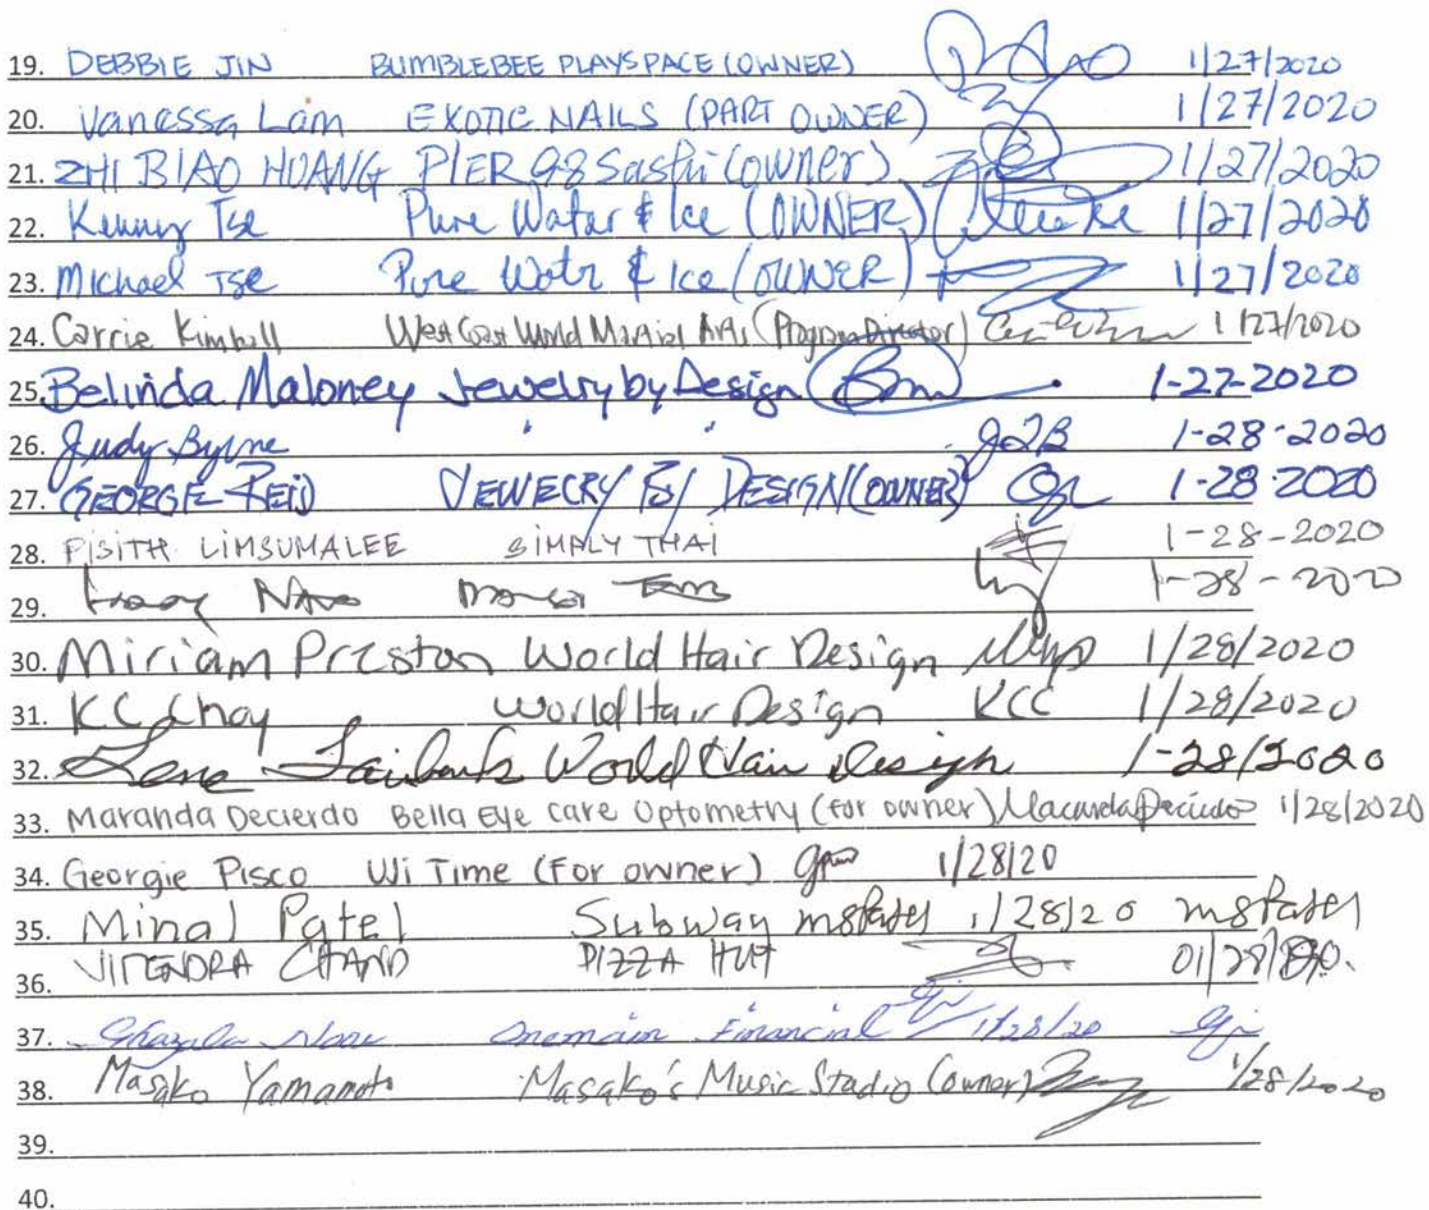 19. DEBBIE JIN BUMBLEBEE PLAYSPACE (OWNER) 1/27/2020
20. Vanessa Lam EXOTIC NAILS (PART OWNER) 1/27/2020
21. ZHI BIAO HUANG PIER 98 Sushi (owner) 1/27/2020
22. Kenny Tse Pure Water & Ice (OWNER) 1/27/2020
23. Michael TSE Pure Watr & Ice (OWNER) 1/27/2020
24. Carrie Kimball West Coast World Martial Arts (Program Director) 1/27/2020
25. Belinda Maloney Jewelry by Design Bm 1-27-2020
26. Judy Byrne " " JLB 1-28-2020
27. GEORGE REID JEWELRY BY DESIGN (OWNER) 1-28-2020
28. PISITH LIMSUMALEE SIMPLY THAI 1-28-2020
29. 1-28-2020
30. Miriam Preston World Hair Design 1/28/2020
31. KC Choy World Hair Design KCC 1/28/2020
32. Lene Fairbanks World Hair Design 1-28/2020
33. Maranda Decierdo Bella Eye Care Optometry (for owner) Maranda Decierdo 1/28/2020
34. Georgie Pisco Wi Time (For owner) 1/28/20
35. Minal Patel Subway mspatel 1/28/20 mspatel
36. JITENDRA CHAND PIZZA HUT 01/28/
37. Ghazala Onemain Financial 1/28/20
38. Masako Yamamoto Masako's Music Studio (owner) 1/28/2020
39.
40.